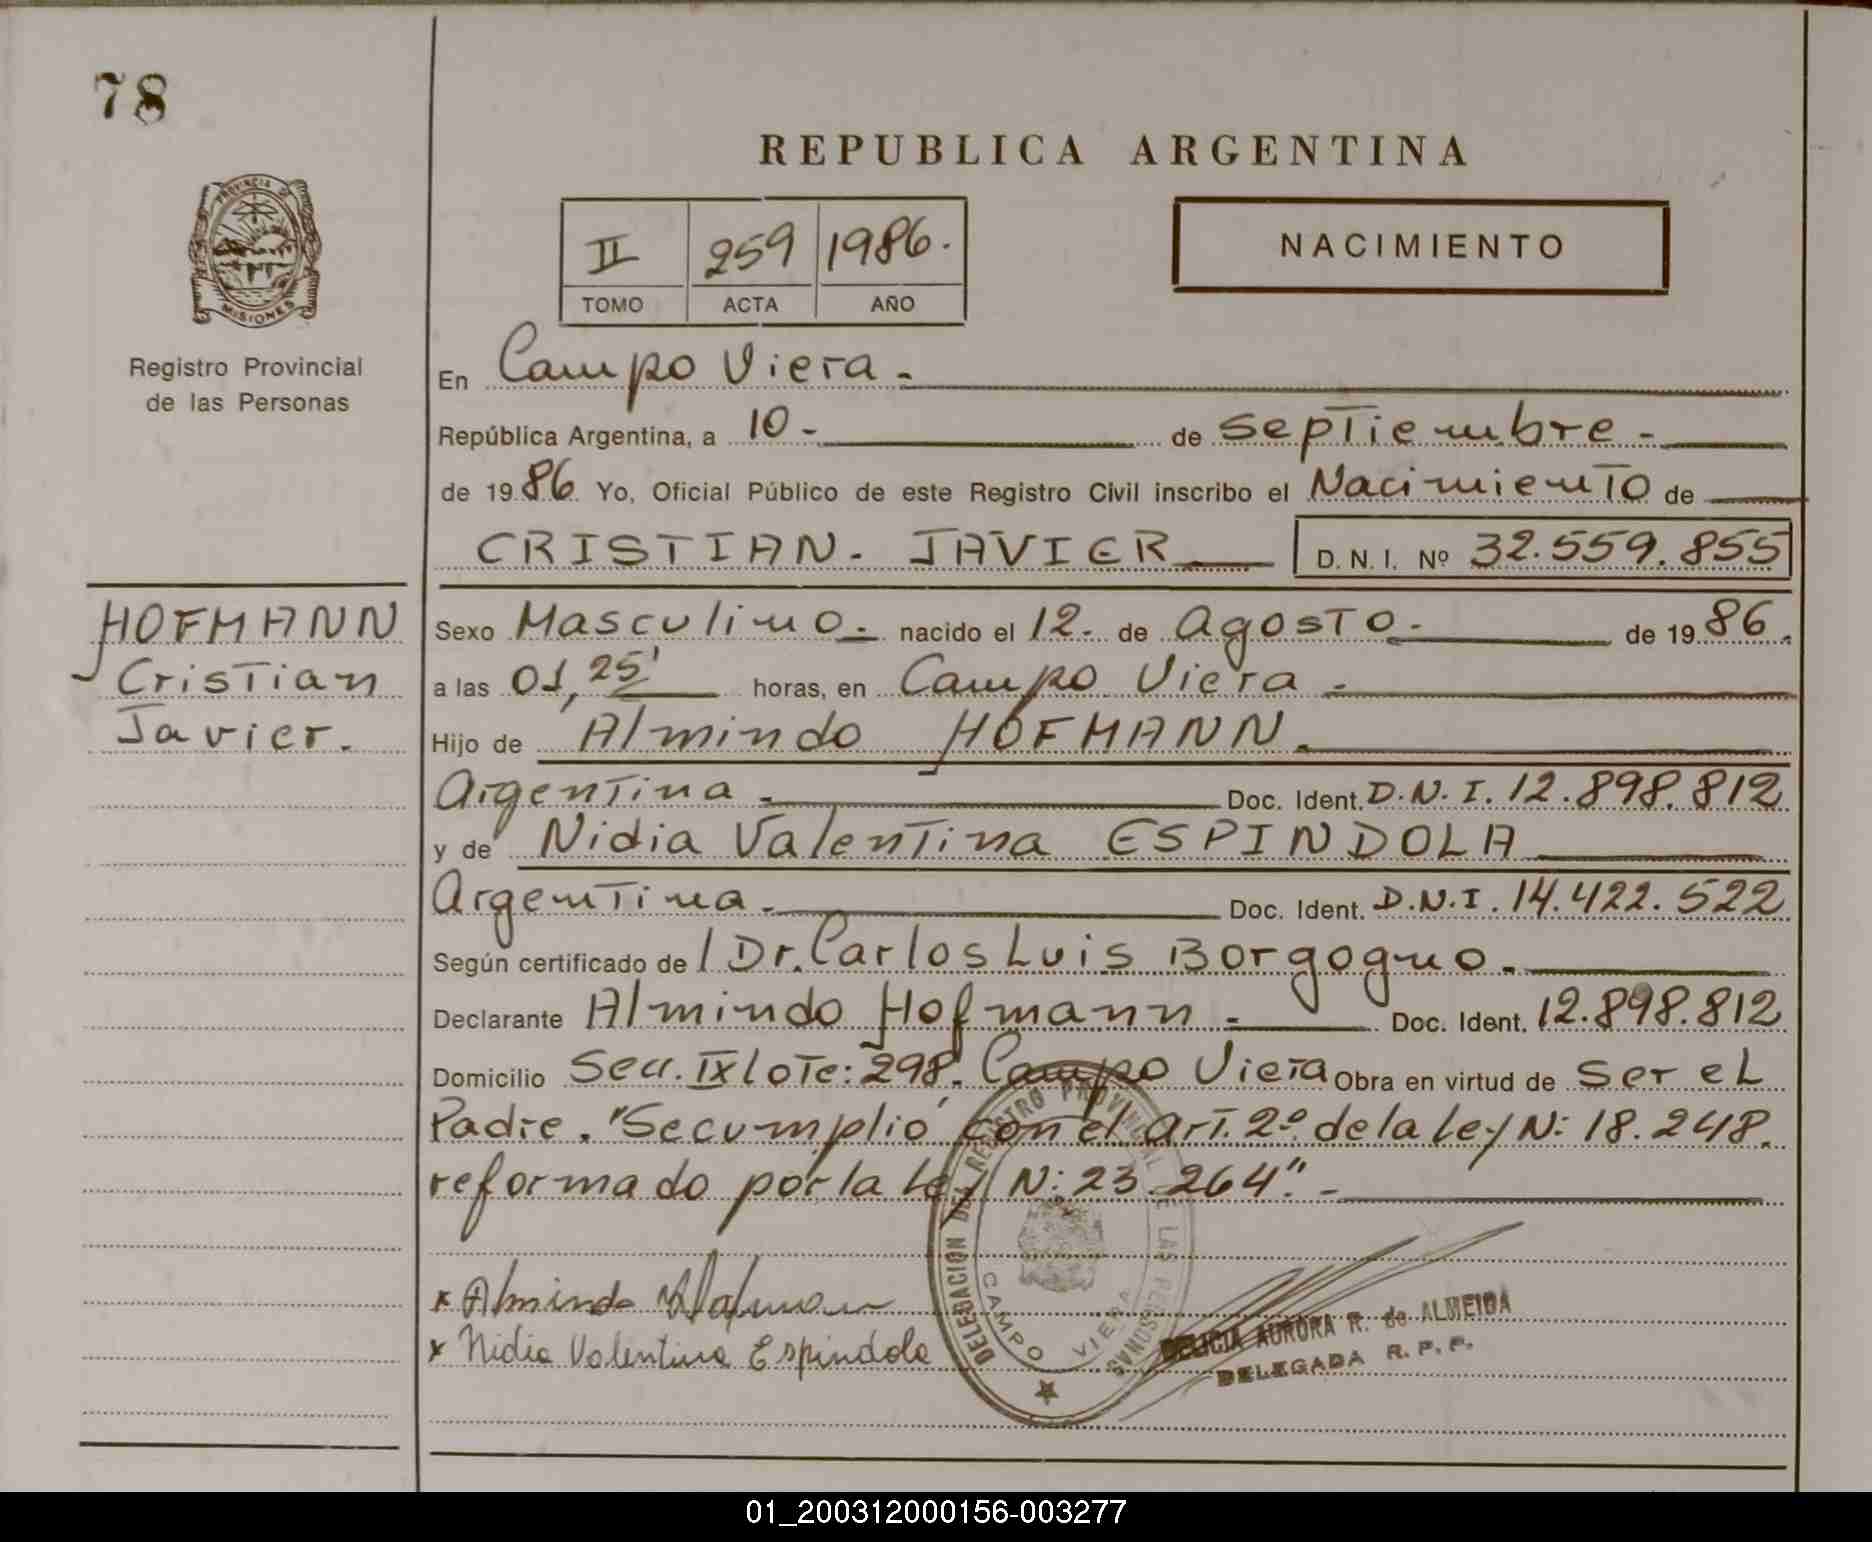 78
REPUBLICA ARGENTINA
PROVINCIA DE
MISIONES
Registro Provincial
de las Personas
II 259 1986.
TOMO ACTA AÑO
NACIMIENTO
En Campo Viera.
República Argentina, a 10 - de septiembre -
de 19 86 Yo, Oficial Público de este Registro Civil inscribo el Nacimiento de
CRISTIAN. JAVIER D. N. I. Nº 32.559.855
HOFMANN
Cristian
Javier.
Sexo Masculino. nacido el 12. de Agosto. de 19 86.
a las 01,25' horas, en Campo Viera -
Hijo de Almindo HOFMANN.
Argentina - Doc. Ident. D.N.I. 12.898.812
y de Nidia Valentina ESPINDOLA
Argentina. Doc. Ident. D.N.I. 14.422.522
Según certificado de / Dr. Carlos Luis Borgogno.
Declarante Almindo Hofmann. Doc. Ident. 12.898.812
Domicilio Secc. IX lote: 298. Campo Viera Obra en virtud de ser el
Padre. "Se cumplió con el art. 2º de la ley N: 18.248.
reformado por la ley N: 23.264". -
x Almindo Hofmann
x Nidia Valentina Espindola
DELEGACION DEL REGISTRO PROVINCIAL DE LAS PERSONAS
CAMPO VIERA
DELICIA AURORA R. de ALMEIDA
DELEGADA R. P. P.
01_200312000156-003277